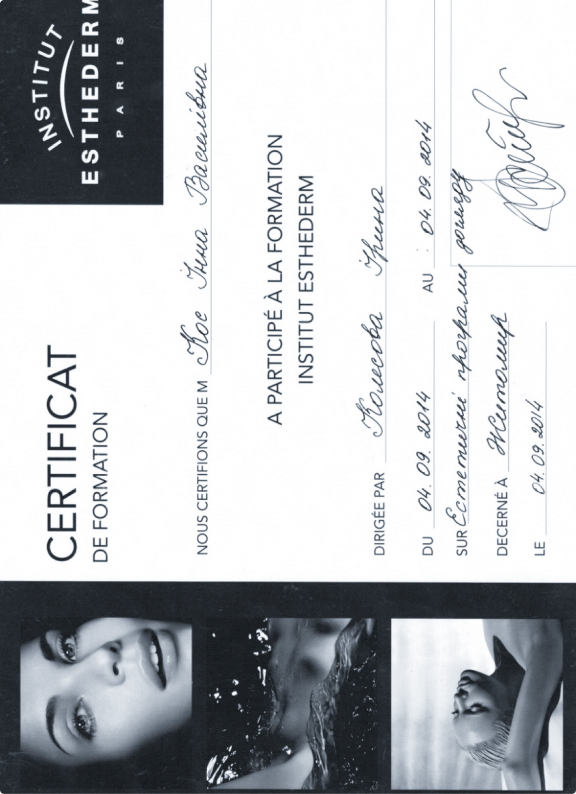 INSTITUT
ESTHEDERM
PARIS
CERTIFICAT
DE FORMATION
NOUS CERTIFIONS QUE M Кос Інна Василівна
A PARTICIPÉ À LA FORMATION
INSTITUT ESTHEDERM
DIRIGÉE PAR Колесова Ірина
DU 04.09.2014 AU : 04.09.2014
SUR Естетичні програми догляду
DECERNÉ À Житомир
LE 04.09.2014